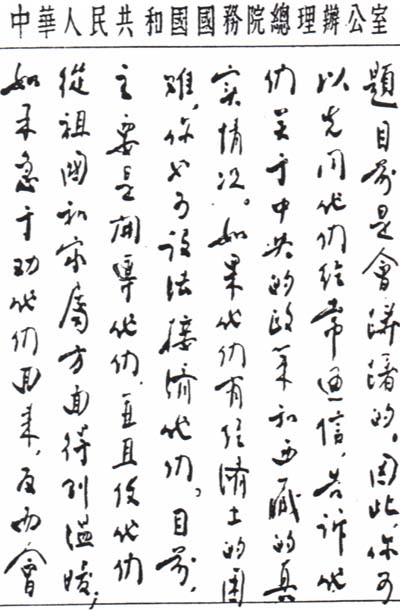 中華人民共和國國務院總理辦公室
題目前是會躊躇的。因此,你可
以先同他们經常通信,告訴他
们关于中共的政策和西藏的真
实情况。如果他们有經濟上的困
难,你也可設法接濟他们。目前,
主要是開導他们,並且使他们
從祖國和家屬方面得到溫暖;
如果急于劝他们回來,反而會